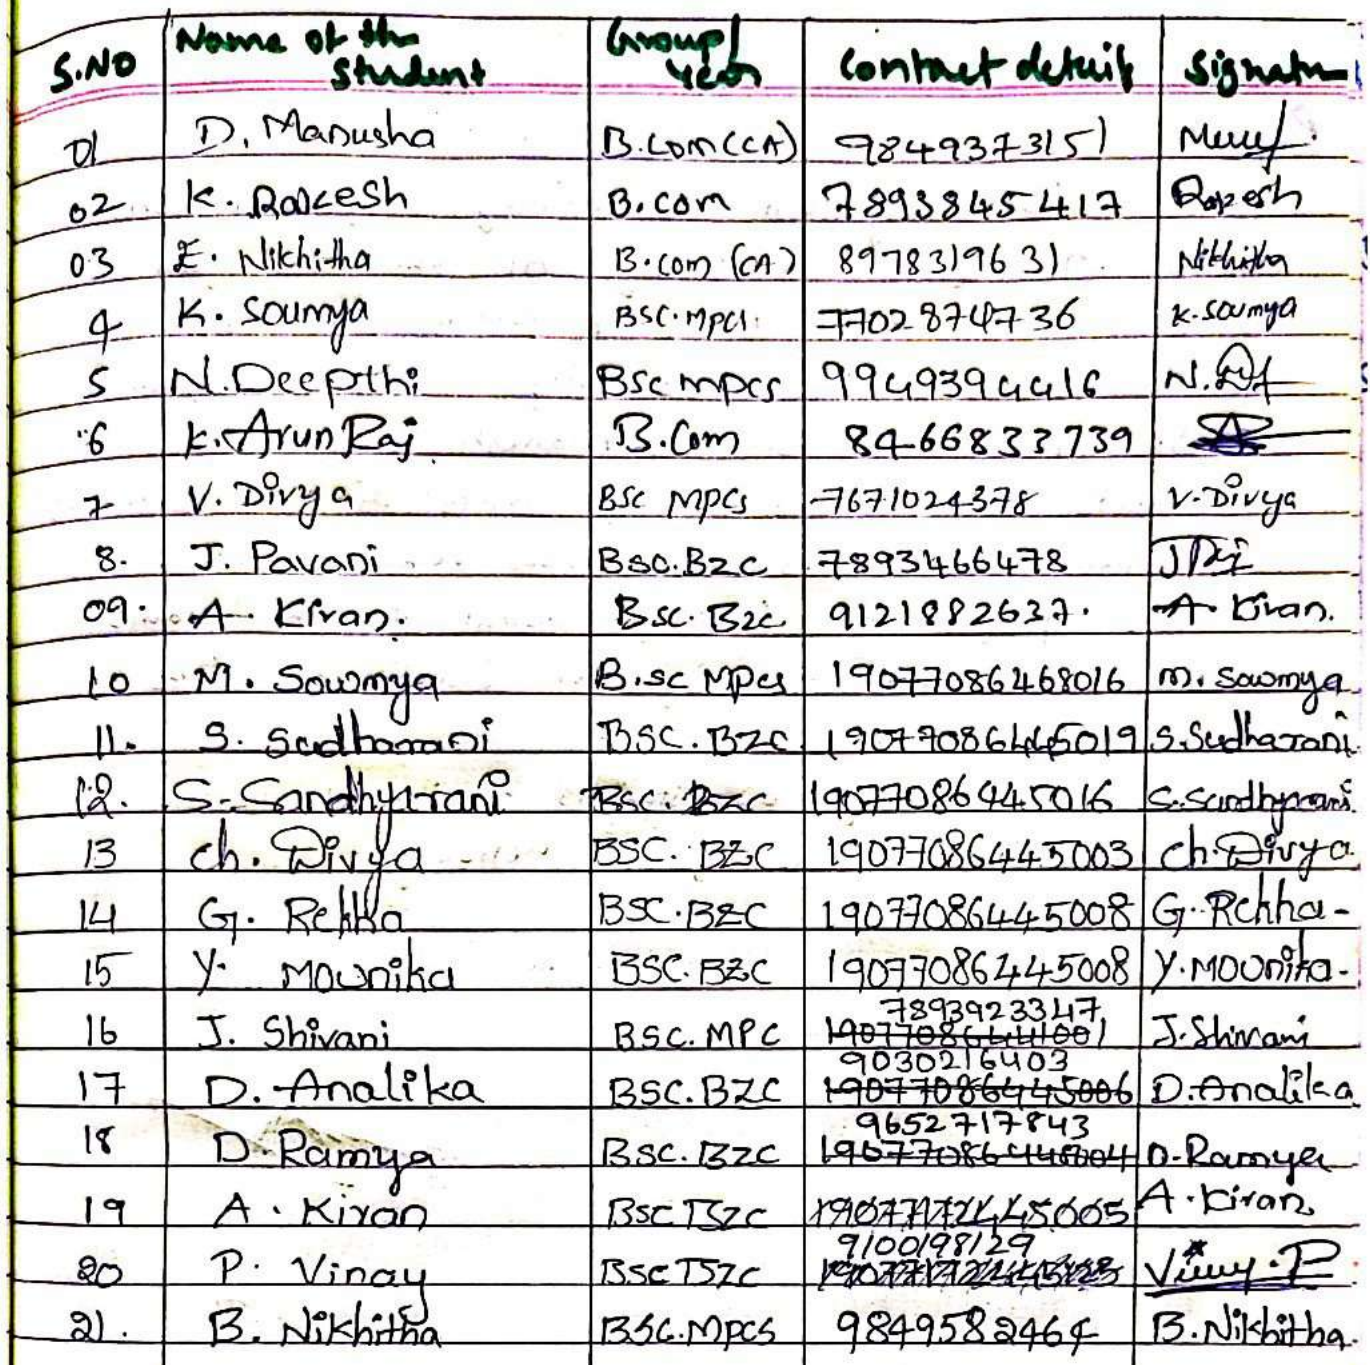 S.NO Name of the Student Group/Year Contact details Signature
01 D. Manusha B.Com(CA) 9849373151
02 K. Rakesh B.com 7893845417 Rakesh
03 E. Nikhitha B.com (CA) 8978319631 Nikhitha
4 K. Soumya BSC.MPCS 7702874736 K.Soumya
5 N.Deepthi BSc mpcs 9949394416
6 K.Arun Raj B.Com 8466833739
7 V. Divya BSC MPCS 7671024378 V.Divya
8. J. Pavani Bsc.BZC 7893466478
09. A. Kiran. Bsc. BZC 9121882637. A. Kiran.
10 M. Sowmya B.sc MPCS 19077086468016 m. sowmya
11. S. Sudharani BSC. BZC 19077086445019 S.Sudharani
12. S. Sandhyarani BSC. BZC 19077086445016 S.Sandhyarani
13 Ch. Divya BSC. BZC 19077086445003 Ch.Divya
14 G. Rekha BSC.BZC 19077086445008 G. Rekha-
15 Y. Mounika BSC.BZC 19077086445008 Y.Mounika-
16 J. Shivani BSC.MPC 7893923347 J.Shivani
17 D. Analika BSC.BZC 9030216403 19077086445006 D.Analika
18 D. Ramya BSC.BZC 9652717843 D.Ramya
19 A. Kiran BSC BZC 190771724445005 A.Kiran
20 P. Vinay BSC BZC 9100198129 Vinay.P
21. B. Nikhitha BSC.MPCS 9849582464 B.Nikhitha.